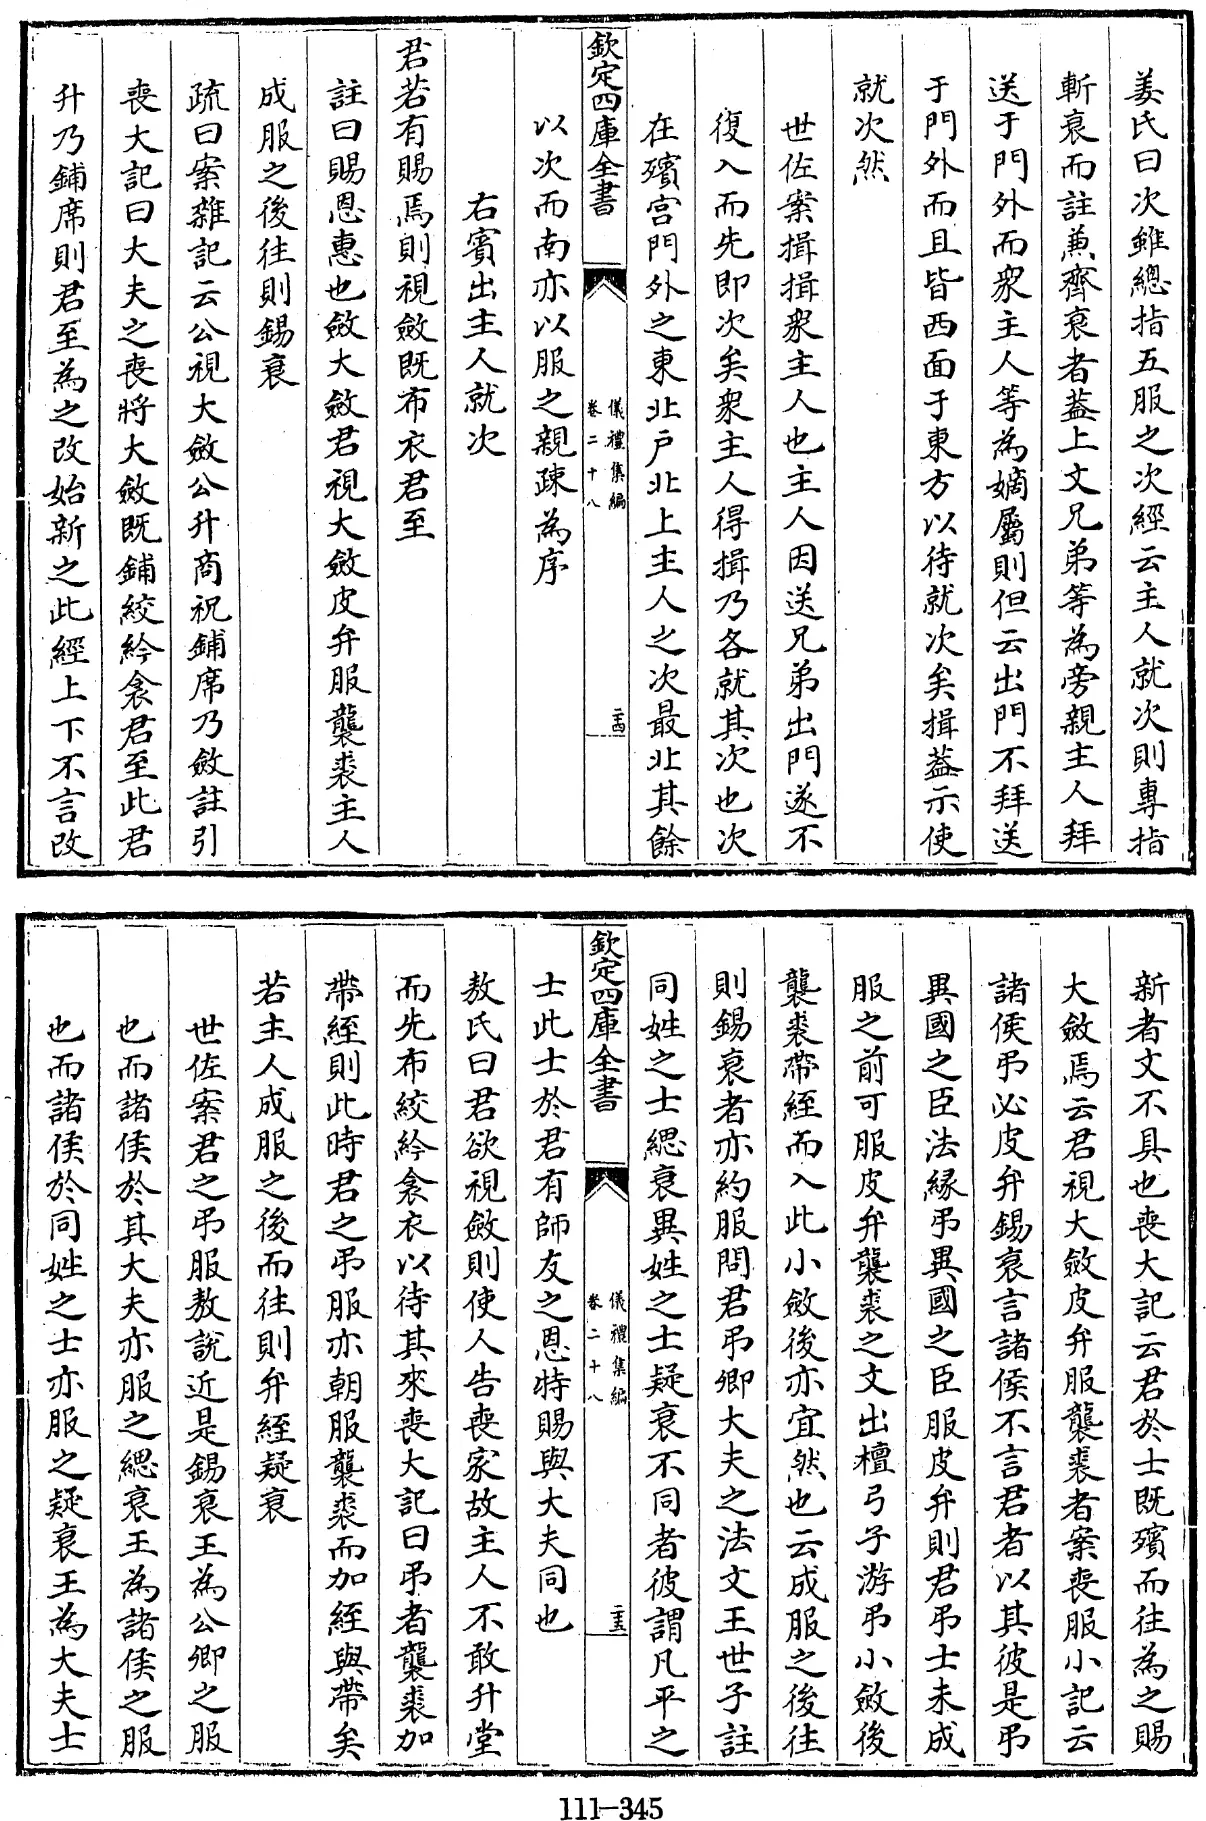 姜氏曰次雖總指五服之次經云主人就次則專指
斬衰而註兼齊衰者葢上文兄弟等為旁親主人拜
送于門外而衆主人等為嫡屬則但云出門不拜送
于門外而且皆西面于東方以待就次矣揖葢示使
就次然
世佐案揖揖衆主人也主人因送兄弟出門遂不
復入而先即次矣衆主人得揖乃各就其次也次
在殯宮門外之東北戶北上主人之次最北其餘
欽定四庫全書
儀禮集編
卷二十八
二十四
以次而南亦以服之親疎為序
右賓出主人就次
君若有賜焉則視斂既布衣君至
註曰賜恩惠也斂大斂君視大斂皮弁服襲裘主人
成服之後往則錫衰
疏曰案雜記云公視大斂公升商祝鋪席乃斂註引
喪大記曰大夫之喪將大斂既鋪絞紟衾君至此君
升乃鋪席則君至為之改始新之此經上下不言改
新者文不具也喪大記云君於士既殯而往為之賜
大斂焉云君視大斂皮弁服襲裘者案喪服小記云
諸侯弔必皮弁錫衰言諸侯不言君者以其彼是弔
異國之臣法縁弔異國之臣服皮弁則君弔士未成
服之前可服皮弁襲裘之文出檀弓子游弔小斂後
襲裘帶絰而入此小斂後亦宜然也云成服之後往
則錫衰者亦約服問君弔卿大夫之法文王世子註
同姓之士緦衰異姓之士疑衰不同者彼謂凡平之
欽定四庫全書
儀禮集編
卷二十八
二十五
士此士於君有師友之恩特賜與大夫同也
敖氏曰君欲視斂則使人告喪家故主人不敢升堂
而先布絞紟衾衣以待其來喪大記曰弔者襲裘加
帶絰則此時君之弔服亦朝服襲裘而加絰與帶矣
若主人成服之後而往則弁絰疑衰
世佐案君之弔服敖說近是錫衰王為公卿之服
也而諸侯於其大夫亦服之緦衰王為諸侯之服
也而諸侯於同姓之士亦服之疑衰王為大夫士
111-345